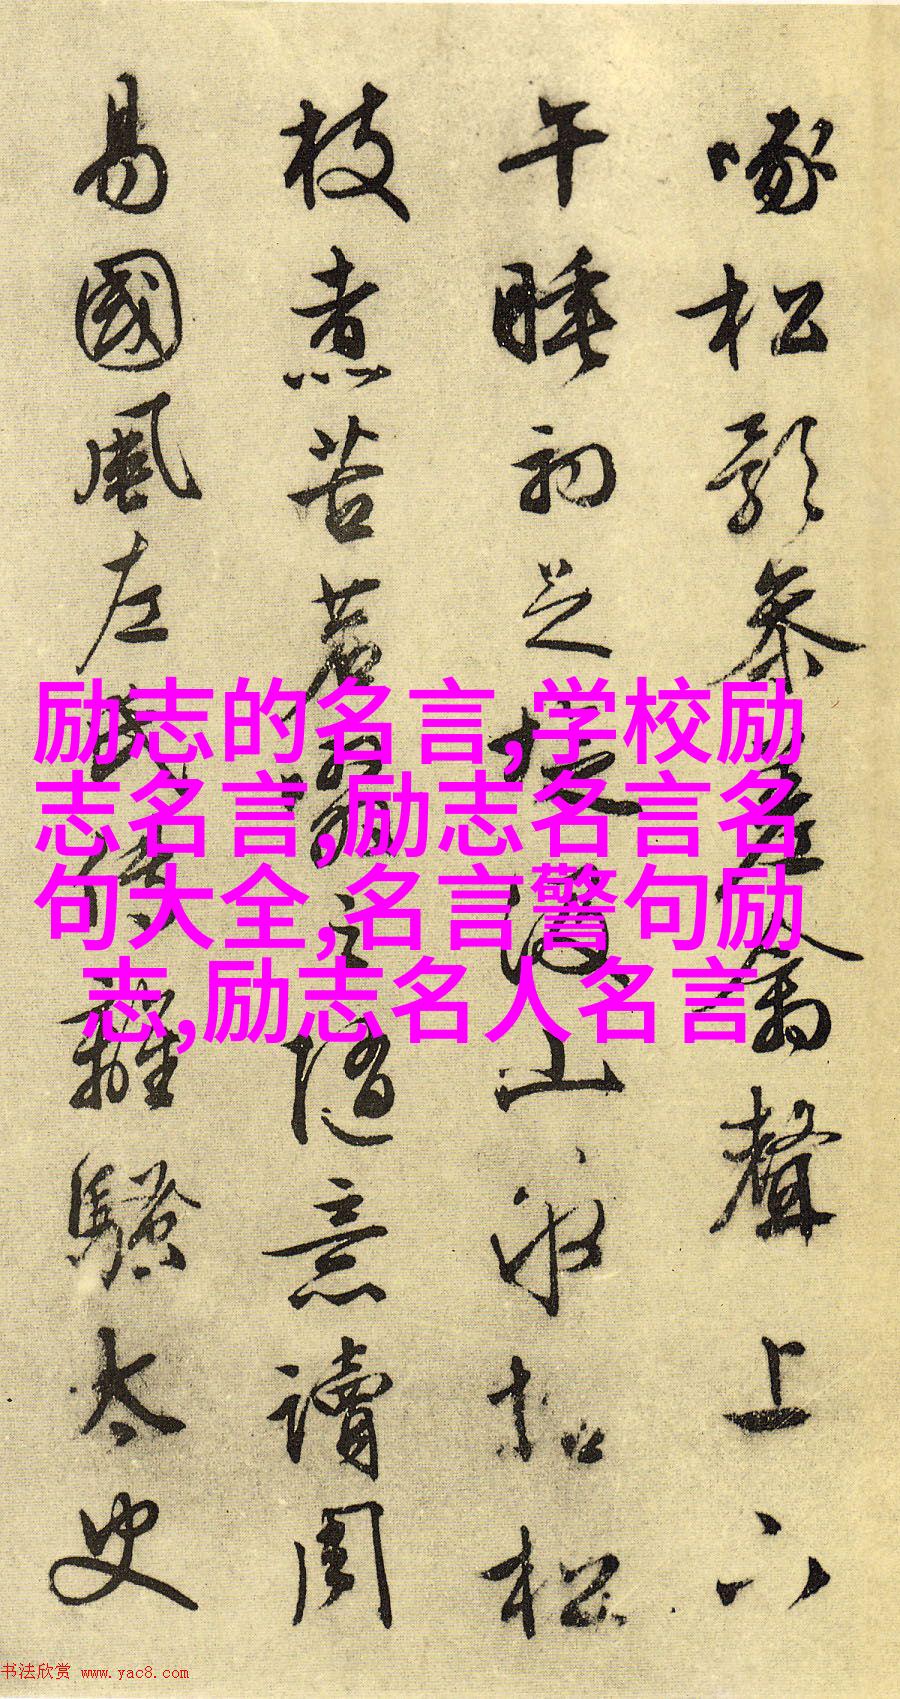 啄松影参差禽聲上下
午睡初足旋汲山泉拾松
枝煮苦茗啜之隨意讀周
易國風左氏傳離騷太史
励志的名言,学校励
志名言,励志名言名
句大全,名言警句励
志,励志名人名言
书法欣赏 www.yac8.com